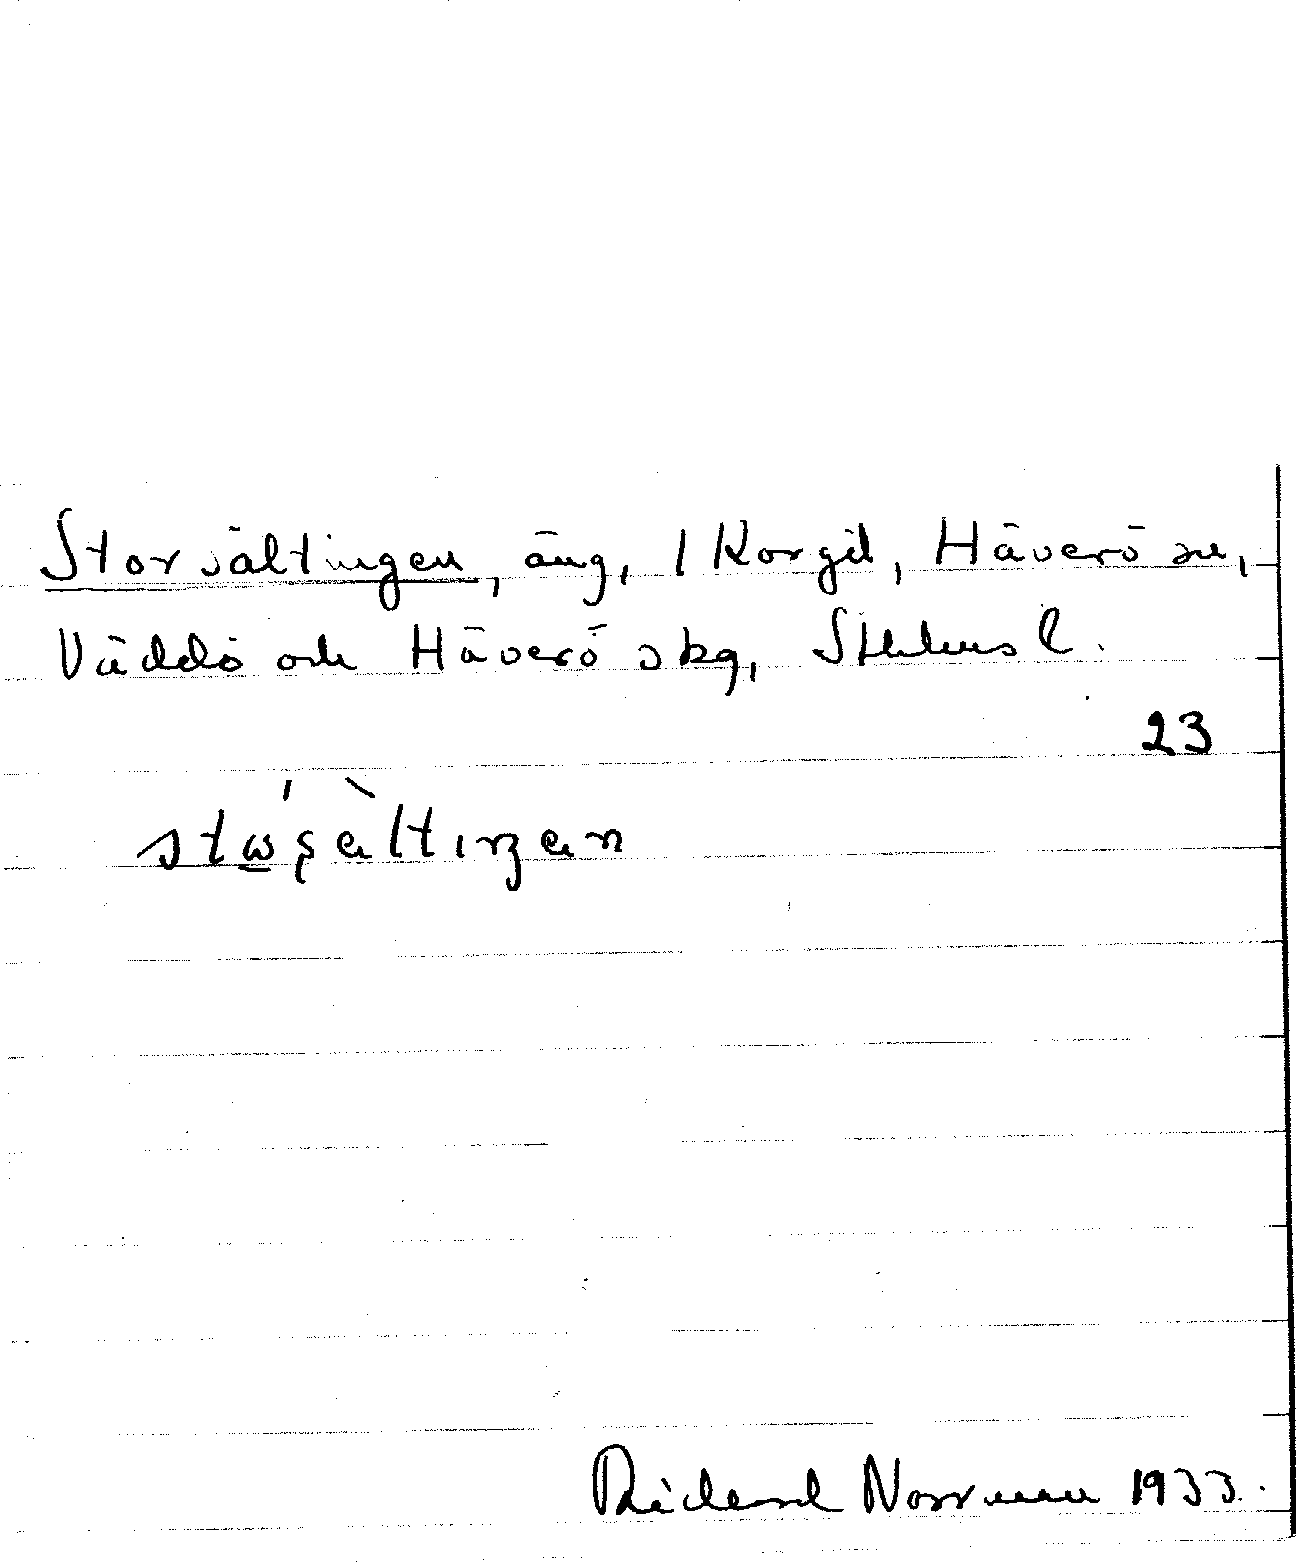 Storsältingen, äng, 1 Korgil, Häverö sn,
Väddö och Häverö skg, Sthlms l.
23
stωʂæ̀ltıŋæn
Richard Norrman 1933.